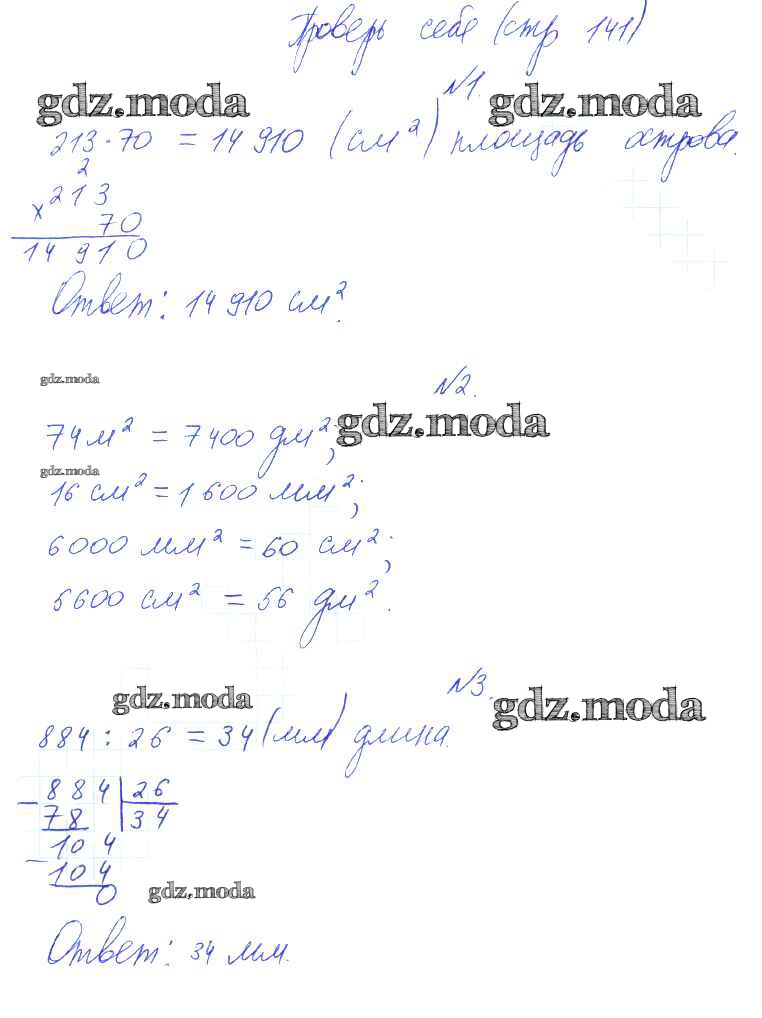 Проверь себе (стр 141)
№1.
gdz.moda gdz.moda
213·70 = 14 910 (см²) площадь острова.
2
× 213
70
14 910
Ответ: 14 910 см².
gdz.moda
№2.
74 м² = 7400 дм²; gdz.moda
gdz.moda
16 см² = 1 600 мм²;
6000 мм² = 60 см²;
5600 см² = 56 дм².
№3.
gdz.moda gdz.moda
884 : 26 = 34 (мм) длина.
- 884 | 26
78 | 34
104
- 104
0
gdz.moda
Ответ: 34 мм.